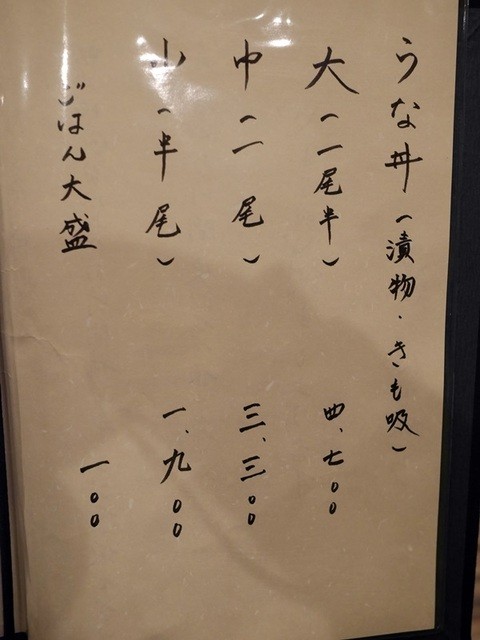 うな丼（漬物・きも吸）
大（一尾半）四、七〇〇
中（一尾）三、三〇〇
小（半尾）一、九〇〇
ごはん大盛 一〇〇